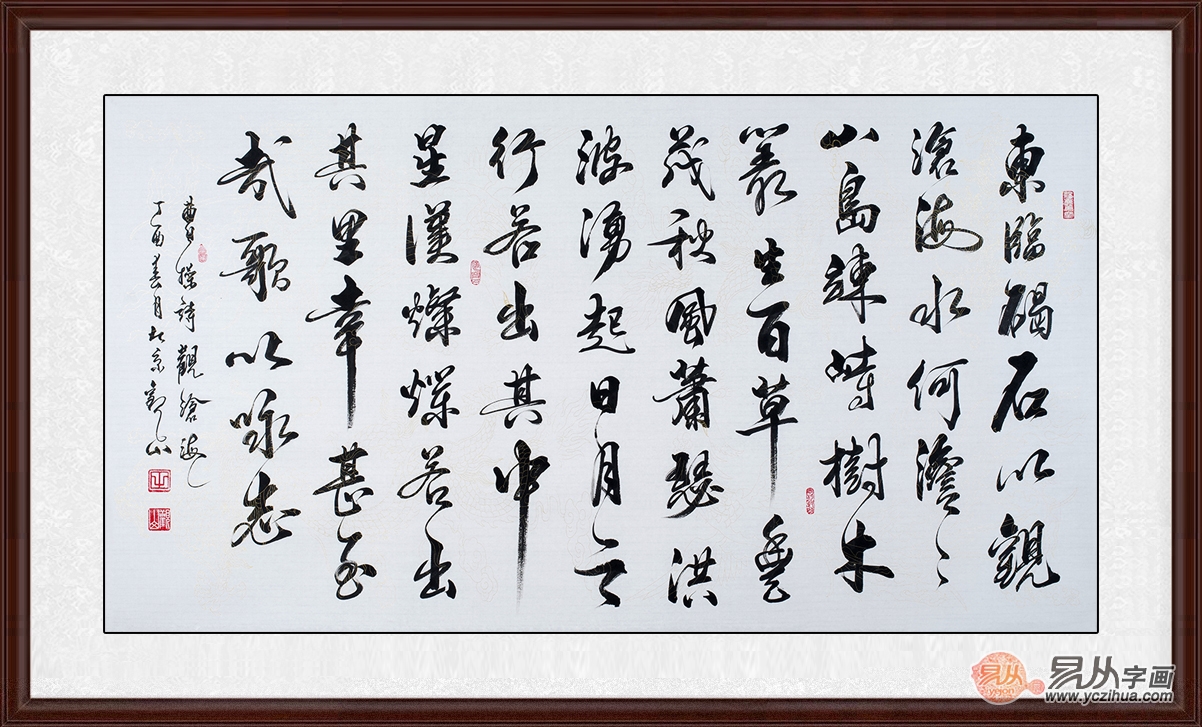 東臨碣石以觀
滄海水何澹〻
山島竦峙樹木
叢生百草豐
茂秋風蕭瑟洪
波湧起日月之
行若出其中
星漢燦爛若出
其里幸甚至
哉歌以詠志
曹操詩觀滄海
丁酉春月北京觀山
易从
易从字画
www.yczihua.com